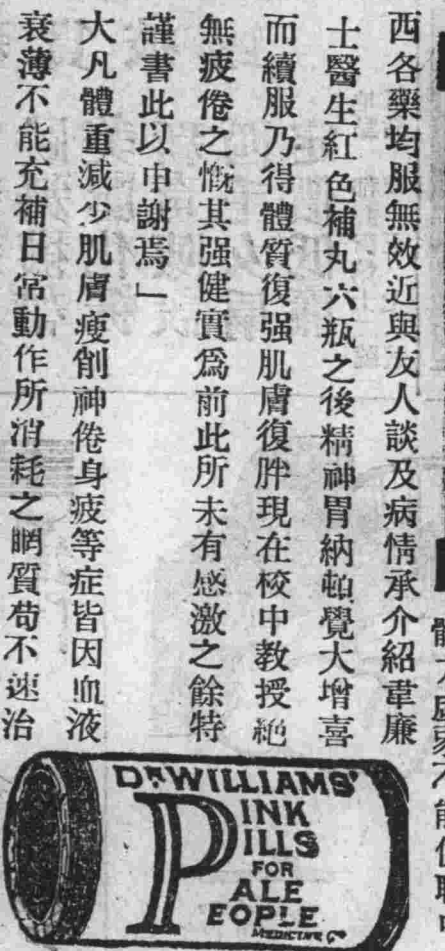 西各藥均服無效近與友人談及病情承介紹韋廉
士醫生紅色補丸六瓶之後精神胃納頓覺大增喜
而續服乃得體質復强肌膚復胖現在校中教授絕
無疲倦之慨其强健實爲前此所未有感激之餘特
謹書此以申謝焉」
大凡體重減少肌膚瘦削神倦身疲等症皆因血液
衰薄不能充補日常動作所消耗之體質苟不速治
DR. WILLIAMS'
PINK
PILLS
FOR
PALE
PEOPLE
MEDICINE Co